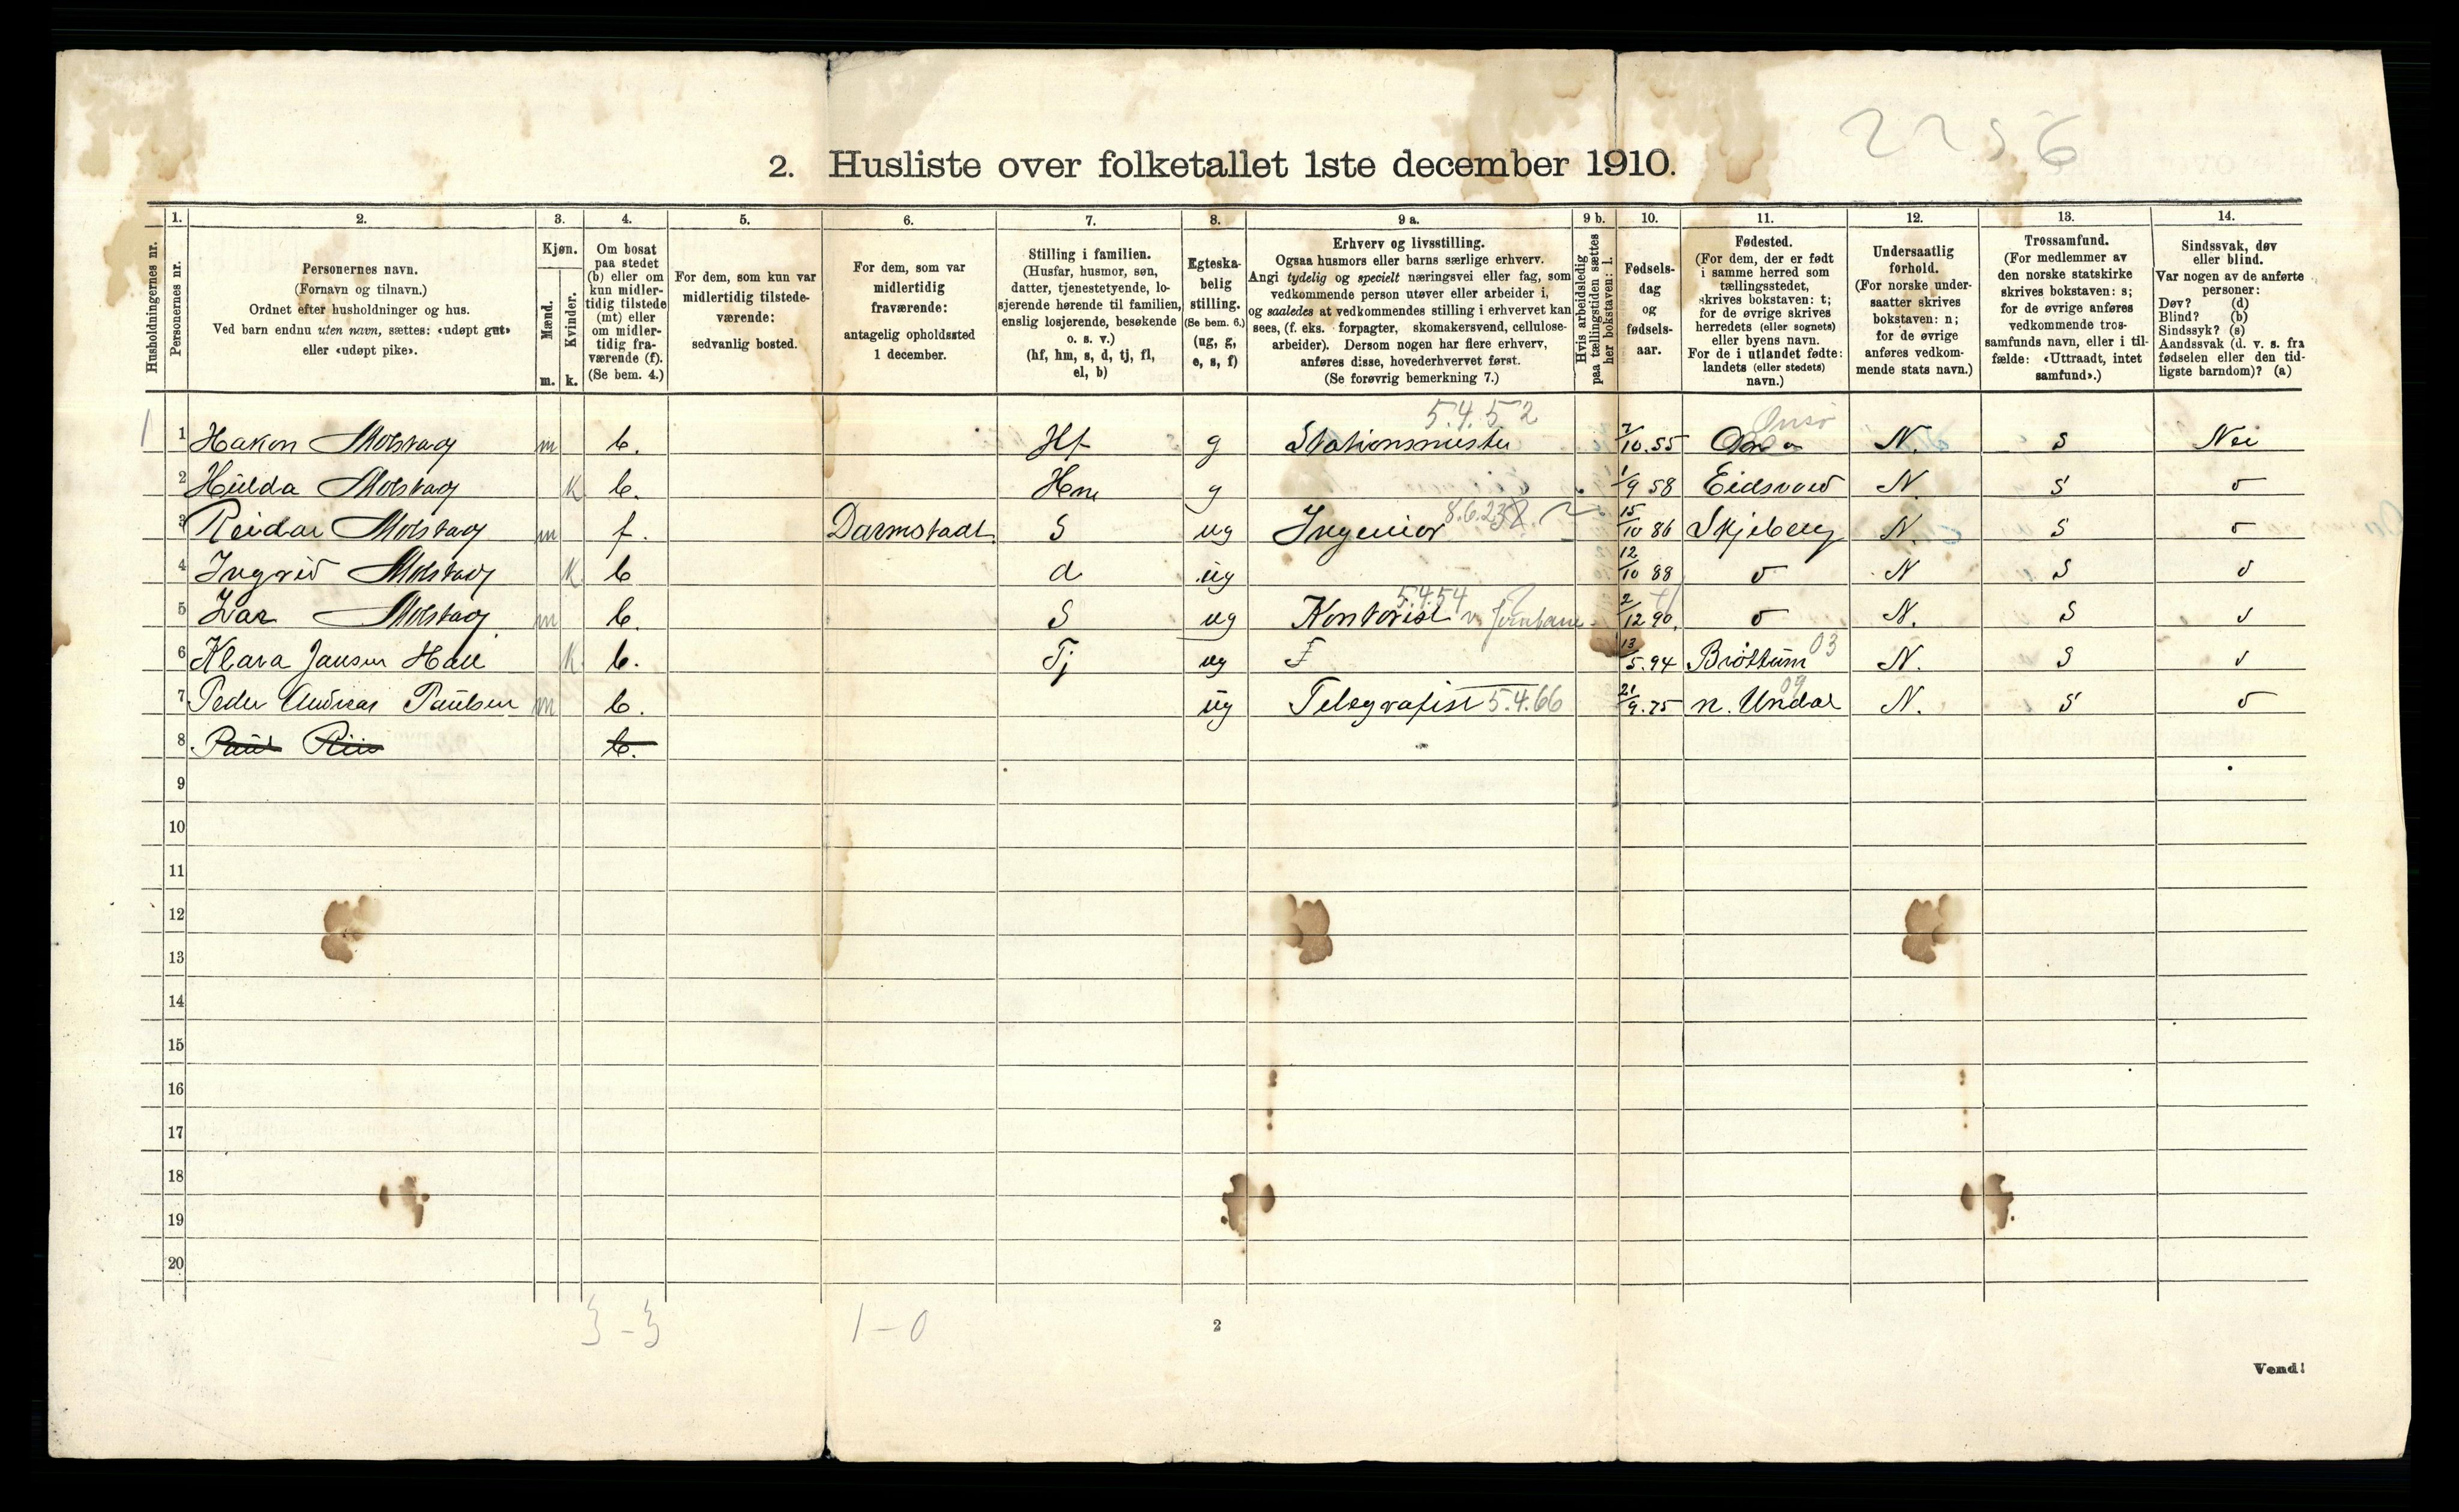 2256
2. Husliste over folketallet 1ste december 1910.
Husholdningernes nr.
1.
Personernes nr.
2.
Personernes navn.
(Fornavn og tilnavn.)
Ordnet efter husholdninger og hus.
Ved barn endnu uten navn, sættes: «udøpt gut»
eller «udøpt pike».
3.
Kjøn.
Mænd.
m.
Kvinder.
k.
4.
Om bosat
paa stedet
(b) eller om
kun midler-
tidig tilstede
(mt) eller
om midler-
tidig fra-
værende (f).
(Se bem. 4.)
5.
For dem, som kun var
midlertidig tilstede-
værende:
sedvanlig bosted.
6.
For dem, som var
midlertidig
fraværende:
antagelig opholdssted
1 december.
7.
Stilling i familien.
(Husfar, husmor, søn,
datter, tjenestetyende, lo-
sjerende hørende til familien,
enslig losjerende, besøkende
o. s. v.)
(hf, hm, s, d, tj, fl,
el, b)
8.
Egteska-
belig
stilling.
(Se bem. 6.)
(ug, g,
e, s, f)
9 a.
Erhverv og livsstilling.
Ogsaa husmors eller barns særlige erhverv.
Angi tydelig og specielt næringsvei eller fag, som
vedkommende person utøver eller arbeider i,
og saaledes at vedkommendes stilling i erhvervet kan
sees, (f. eks. forpagter, skomakersvend, cellulose-
arbeider). Dersom nogen har flere erhverv,
anføres disse, hovederhvervet først.
(Se forøvrig bemerkning 7.)
9 b.
Hvis arbeidsledig
paa tællingstiden sættes
her bokstaven: l.
10.
Fødsels-
dag
og
fødsels-
aar.
11.
Fødested.
(For dem, der er født
i samme herred som
tællingsstedet,
skrives bokstaven: t;
for de øvrige skrives
herredets (eller sognets)
eller byens navn.
For de i utlandet fødte:
landets (eller stedets)
navn.)
12.
Undersaatlig
forhold.
(For norske under-
saatter skrives
bokstaven: n;
for de øvrige
anføres vedkom-
mende stats navn.)
13.
Trossamfund.
(For medlemmer av
den norske statskirke
skrives bokstaven: s;
for de øvrige anføres
vedkommende tros-
samfunds navn, eller i til-
fælde: «Uttraadt, intet
samfund».)
14.
Sindssvak, døv
eller blind.
Var nogen av de anførte
personer:
Døv? (d)
Blind? (b)
Sindssyk? (s)
Aandssvak (d. v. s. fra
fødselen eller den tid-
ligste barndom)? (a)
5.4.52 Onsø
1 1 Hakon Molstad m b. Hf g Stationsmester 7/10.55 N. S Nei
2 Hulda Molstad k b. Hm g 1/9 58 Eidsvold N. S o
8.6.23
3 Reidar Molstad m f. Darmstadt S ug Ingeniør 15/10 86 Skjeberg N. S o
4 Ingrid Molstad k b d ug 12/10 88 o N S o
5454
5 Ivar Molstad m b. S ug Kontorist v. Jernbane 2/12 90. o N. S o
6 Klara Jansen k b. Tj ug 13/5.94 Brøttum 03 N. S o
09
7 Peder Andreas Paulsen m b. ug Telegrafist 5.4.66 21/9.75 n. Undal N. S o
8 Paul b.
9
10
11
12
13
14
15
16
17
18
19
20
3-3 1-0
2
Vend!